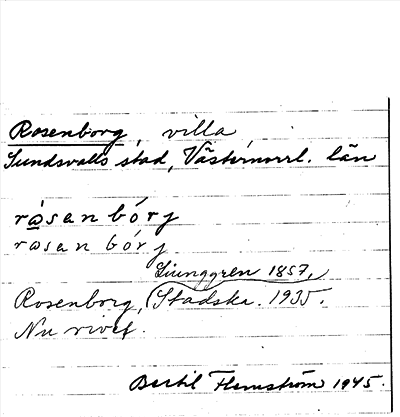 Rosenborg, villa
Sundsvalls stad, Västernorrl. län
rosanbórj
rosanbórj
Ljunggren 1857,
Rosenborg, Stadska. 1935.
Nu rivet.
Bertil Flemström 1945.